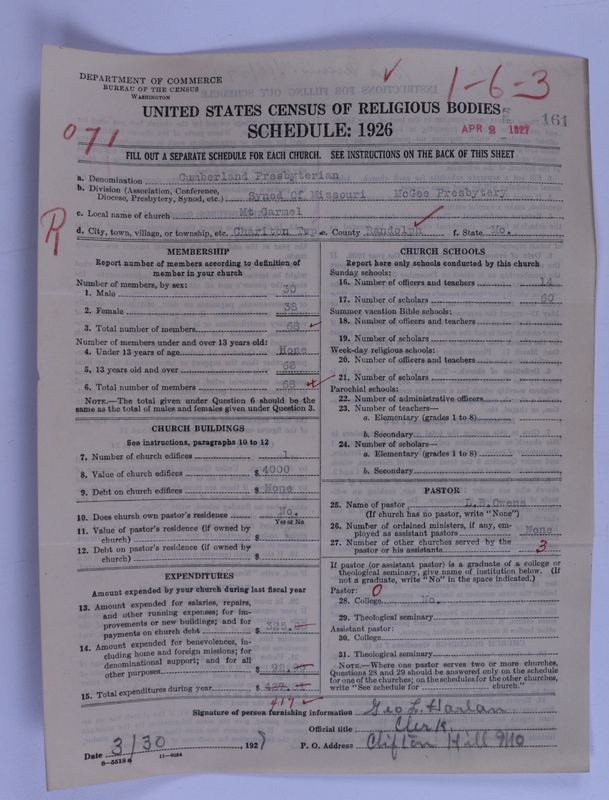 1-6-3
DEPARTMENT OF COMMERCE
BUREAU OF THE CENSUS
WASHINGTON
UNITED STATES CENSUS OF RELIGIOUS BODIES
161
071
SCHEDULE: 1926
APR 2 1927
FILL OUT A SEPARATE SCHEDULE FOR EACH CHURCH. SEE INSTRUCTIONS ON THE BACK OF THIS SHEET
a. Denomination Cumberland Presbyterian
b. Division (Association, Conference,
Diocese, Presbytery, Synod, etc.) Synod Of Missouri McGee Presbytery
c. Local name of church Mt Carmel
R
d. City, town, village, or township, etc. Chariton Twp e. County Randolph f. State Mo.
MEMBERSHIP
Report number of members according to definition of
member in your church
Number of members, by sex:
1. Male 30
2. Female 38
3. Total number of members 68
Number of members under and over 13 years old:
4. Under 13 years of age None
5. 13 years old and over 68
6. Total number of members 68
NOTE.—The total given under Question 6 should be the
same as the total of males and females given under Question 3.
CHURCH BUILDINGS
See instructions, paragraphs 10 to 12
7. Number of church edifices 1
8. Value of church edifices $ 4000
9. Debt on church edifices $ None
10. Does church own pastor's residence? No.
Yes or No
11. Value of pastor's residence (if owned by
church) $
12. Debt on pastor's residence (if owned by
church) $
EXPENDITURES
Amount expended by your church during last fiscal year
13. Amount expended for salaries, repairs,
and other running expenses; for im-
provements or new buildings; and for
payments on church debt $ 325.
14. Amount expended for benevolences, in-
cluding home and foreign missions; for
denominational support; and for all
other purposes $ 92.
15. Total expenditures during year $
417
CHURCH SCHOOLS
Report here only schools conducted by this church
Sunday schools:
16. Number of officers and teachers 14
17. Number of scholars 60
Summer vacation Bible schools:
18. Number of officers and teachers
19. Number of scholars
Week-day religious schools:
20. Number of officers and teachers
21. Number of scholars
Parochial schools:
22. Number of administrative officers
23. Number of teachers—
a. Elementary (grades 1 to 8)
b. Secondary
24. Number of scholars—
a. Elementary (grades 1 to 8)
b. Secondary
PASTOR
25. Name of pastor L.B.Owens
(If church has no pastor, write "None")
26. Number of ordained ministers, if any, em-
ployed as assistant pastors None
27. Number of other churches served by the
pastor or his assistants 3
If pastor (or assistant pastor) is a graduate of a college or
theological seminary, give name of institution below. (If
not a graduate, write "No" in the space indicated.)
Pastor: 0
28. College No.
29. Theological seminary
Assistant pastor:
30. College
31. Theological seminary
NOTE.—Where one pastor serves two or more churches,
Questions 28 and 29 should be answered only on the schedule
for one of the churches; on the schedules for the other churches,
write "See schedule for church."
Signature of person furnishing information Geo L. Harlan
Official title Clerk
Date 3/30, 1927 P. O. Address Clifton Hill Mo